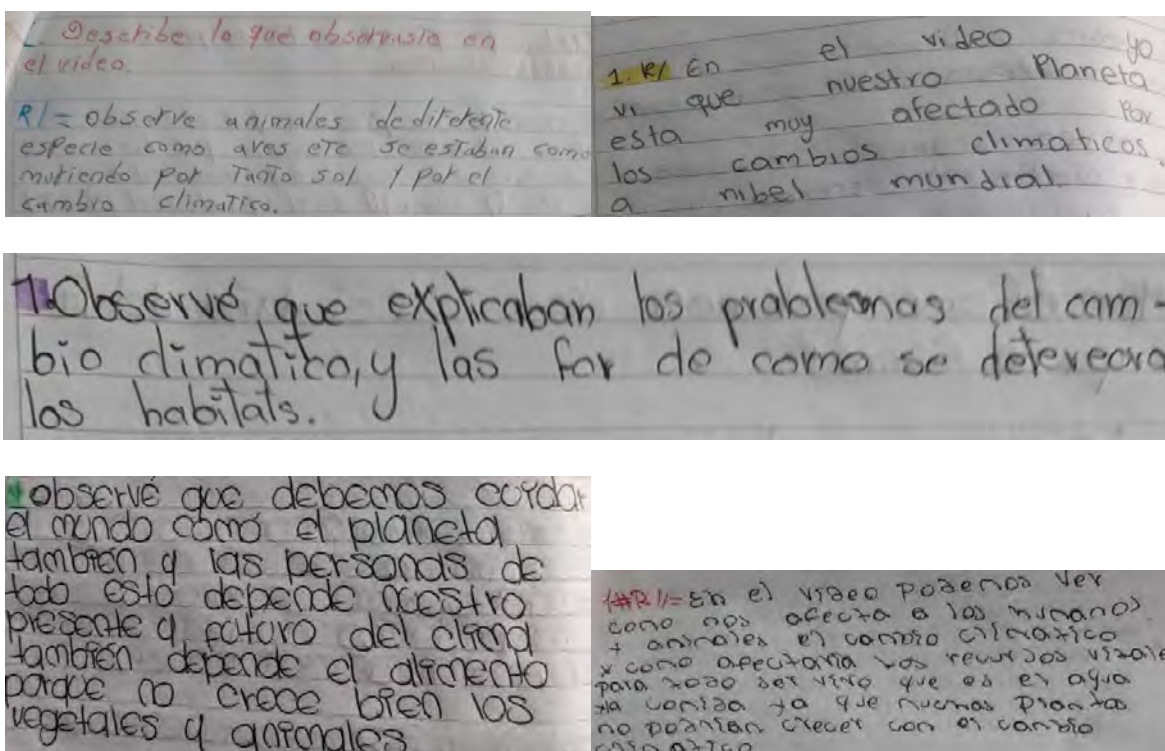 1. Describe lo que observaste en
el video.
R/= observe animales de diferente
especie como aves etc se estaban como
muriendo por Tanto sol y por el
cambio climatico.
1. R/ En el video yo
vi que nuestro Planeta
esta muy afectado Por
los cambios climaticos.
a nibel mundial
1. Observé que explicaban los problemas del cam-
bio climatico, y las for de como se
los habitats.
observé que debemos cuidar
el mundo como el planeta
también y las personas de
todo esto depende nuestro
presente y futuro del clima
también depende el alimento
porque no crece bien los
vegetales y animales
1#R//= En el video Podemos ver
como nos afecta a los humanos
y animales el cambio climatico
y como afectaria los recursos vitale
para todo ser vivo que es el agua
la comida ya que muchas Plantas
no podrian crecer con el cambio
climatico